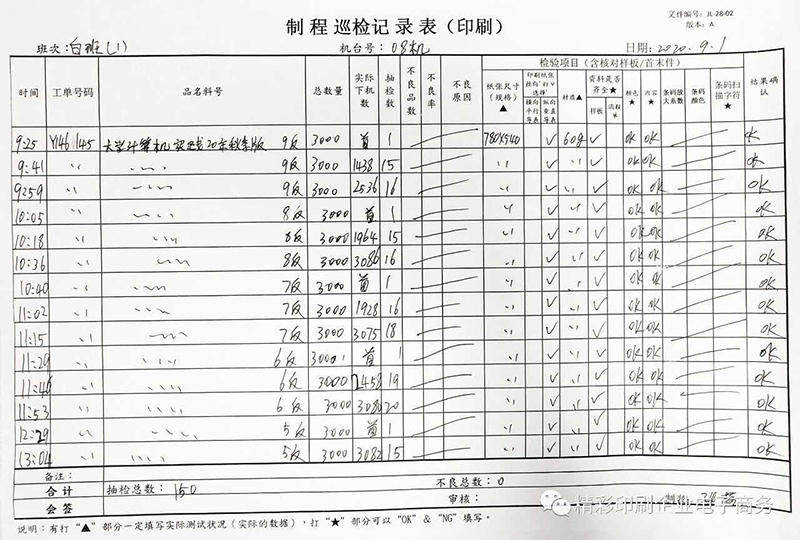 文件编号：JL-28-02
版本：A
制程巡检记录表（印刷）
班次：白班(1) 机台号：08机 日期：2020.9.1
时间 工单号码 品名料号 总数量 实际下机数 抽检数 不良品数 不良率 不良原因 检验项目（含核对样板/首末件） 结果确认
纸张尺寸（规格）▲ 印刷纸张丝向"打√选择" 横向平行导表 纵向垂直导表 材质▲ 资料是否齐全★ 样板 流程单 颜色★ 内容★ 条码放大系数 条码颜色 条码扫描字符★
9:25 Y146145 大学计算机 20东秋季版 9反 3000 首 1 780X540 √ 60g √ OK OK OK
9:41 〃 〃 9反 3000 1438 15 〃 √ 〃 √ OK OK OK
9:59 〃 〃 9反 3000 2536 16 〃 √ 〃 √ OK OK OK
10:05 〃 〃 8反 3000 首 1 〃 √ 〃 √ OK OK OK
10:18 〃 〃 8反 3000 1964 15 〃 √ 〃 √ OK OK OK
10:36 〃 〃 8反 3000 3086 16 〃 √ 〃 √ OK OK OK
10:40 〃 〃 7反 3000 首 1 〃 √ 〃 √ OK OK OK
11:02 〃 〃 7反 3000 1928 16 〃 √ 〃 √ OK OK OK
11:15 〃 〃 7反 3000 3075 18 〃 √ 〃 √ OK OK OK
11:29 〃 〃 6反 3000 首 1 〃 √ 〃 √ OK OK OK
11:46 〃 〃 6反 3000 2458 19 〃 √ 〃 √ OK OK OK
11:53 〃 〃 6反 3000 3080 20 〃 √ 〃 √ OK OK OK
12:29 〃 〃 5反 3000 首 1 〃 √ 〃 √ OK OK OK
13:04 〃 〃 5反 3000 3082 15 〃 √ 〃 √ OK OK OK
备注：
合计 抽检总数：150 不良总数：0
会签 审核： 制程：
精彩印刷企业电子商务
说明：有打"▲"部分一定填写实际测试状况（实际的数据），打"★"部分可以"OK"&"NG"填写。